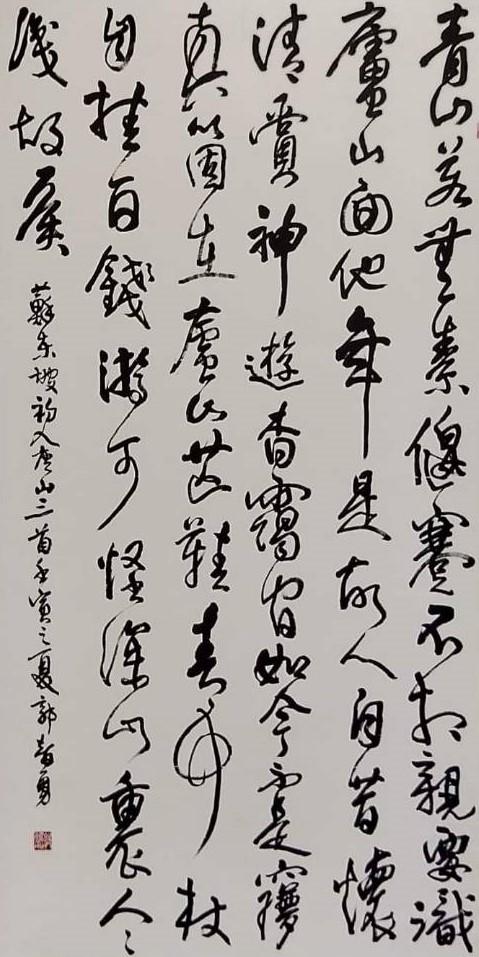 青山若無素偃蹇不相親要識
廬山面他年是故人自昔懷
清賞神遊杳靄間如今不是夢
真箇在廬山芒鞋青竹杖
自挂百錢游可怪深山裏人々
識故侯
蘇東坡初入廬山三首壬寅之夏郭勇